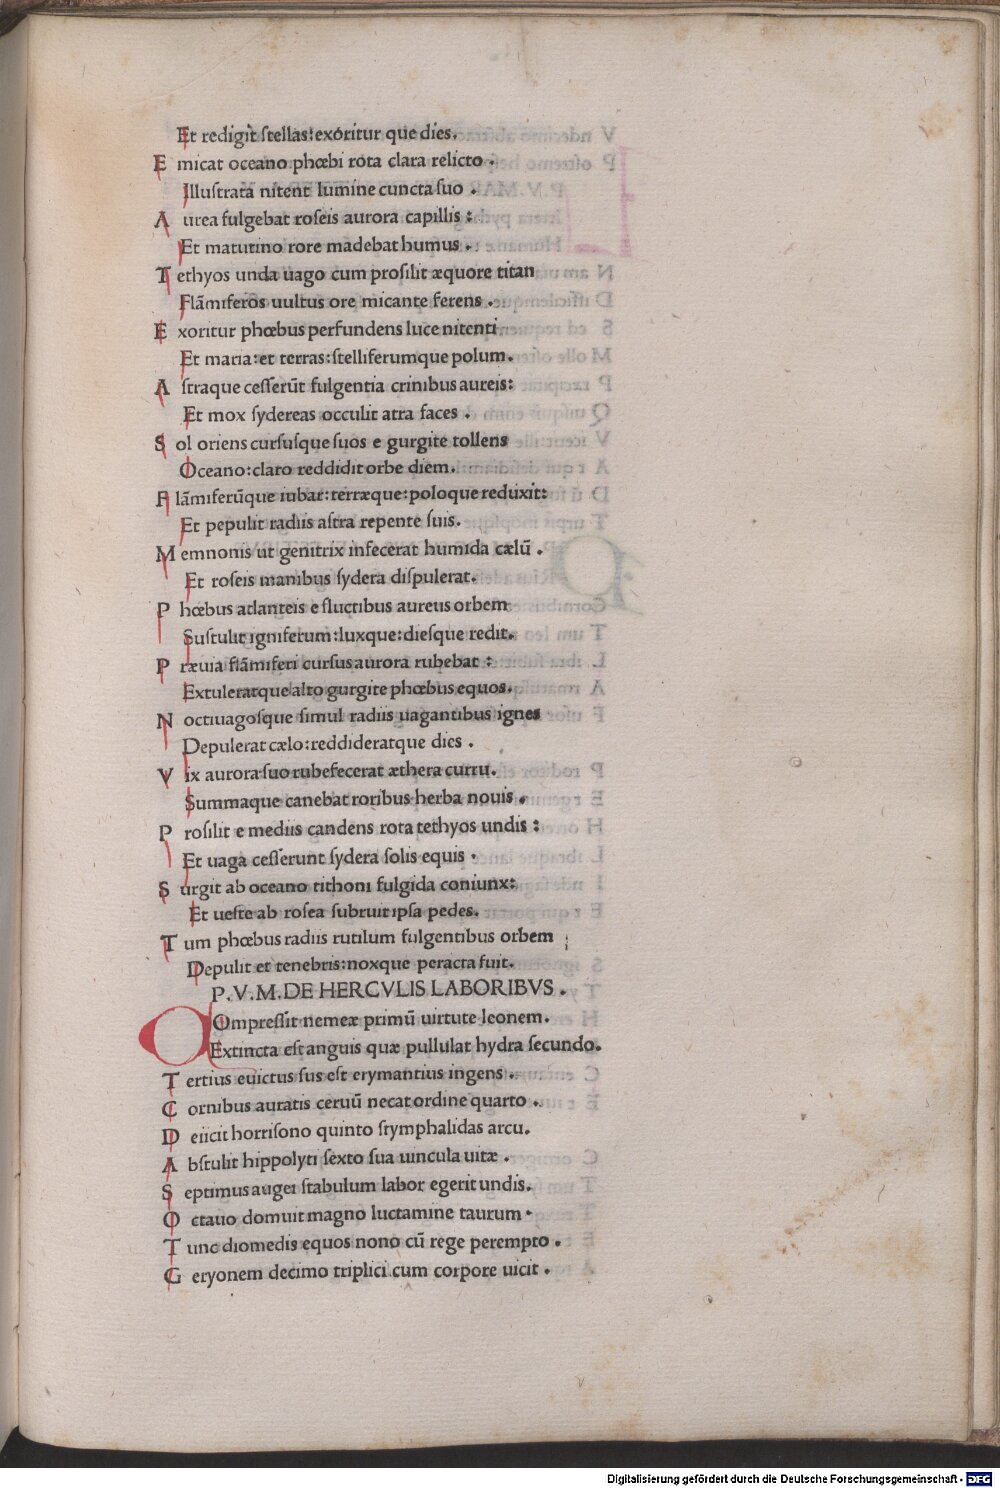 Et redigit ſtellas:exoritur que dies.
E micat oceano phœbi rota clara relicto.
Illuſtrata nitent lumine cuncta ſuo.
A urea fulgebat roſeis aurora capillis:
Et matutino rore madebat humus.
T ethyos unda uago cum proſilit æquore titan
Flãmiferos uultus ore micante ferens.
E xoritur phœbus perfundens luce nitenti
Et maria:et terras:ſtelliferumque polum.
A ſtraque ceſſerũt fulgentia crinibus aureis:
Et mox ſydereas occulit atra faces.
S ol oriens curſuſque ſuos e gurgite tollens
Oceano:claro reddidit orbe diem.
F lãmiferũque iubar:terræque:poloque reduxit:
Et pepulit radiis aſtra repente ſuis.
M emnonis ut genitrix infecerat humida cælũ.
Et roſeis manibus ſydera diſpulerat.
P hœbus atlanteis e fluctibus aureus orbem
Suſtulit igniferum:luxque:dieſque redit.
P ræuia flãmiferi curſus aurora rubebat:
Extuleratque alto gurgite phœbus equos.
N octiuagoſque ſimul radiis uagantibus ignes
Depulerat cælo:reddideratque dies.
V ix aurora ſuo rubefecerat æthera curru.
Summaque canebat roribus herba nouis.
P roſilit e mediis candens rota tethyos undis:
Et uaga ceſſerunt ſydera ſolis equis.
S urgit ab oceano tithoni fulgida coniunx:
Et ueſte ab roſea ſubruit ipſa pedes.
T um phœbus radiis rutilum fulgentibus orbem
Depulit et tenebris:noxque peracta fuit.
P.V.M.DE HERCVLIS LABORIBVS.
C Ompreſſit nemeæ primũ uirtute leonem.
Extincta eſt anguis quæ pullulat hydra ſecundo.
T ertius euictus ſus eſt erymantius ingens.
C ornibus auratis ceruũ necat ordine quarto.
D eiicit horriſono quinto ſtymphalidas arcu.
A bſtulit hippolyti ſexto ſua uincula uitæ.
S eptimus augei ſtabulum labor egerit undis.
O ctauo domuit magno luctamine taurum.
T unc diomedis equos nono cũ rege perempto.
G eryonem decimo triplici cum corpore uicit.
Digitalisierung gefördert durch die Deutsche Forschungsgemeinschaft - DFG